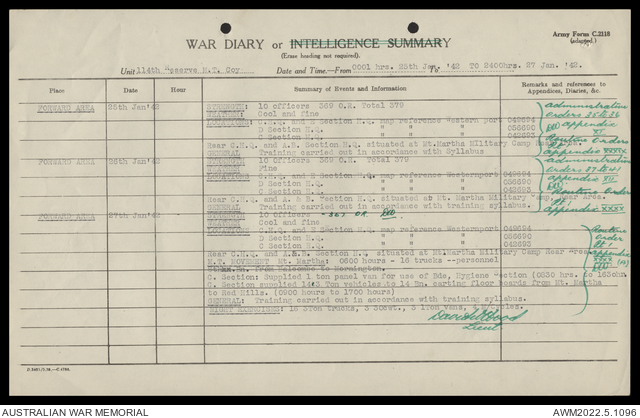 Army Form C.2118
(adapted).
WAR DIARY or INTELLIGENCE SUMMARY
(Erase heading not required).
Unit 114th Reserve M.T. Coy Date and Time—From 0001 hrs. 25th Jan. '42 To TO 2400hrs. 27 Jan. '42.
Place Date Hour Summary of Events and Information Remarks and references to Appendices, Diaries, &c.
FORWARD AREA 25th Jan '42 STRENGTH: 10 officers 369 O.R. Total 379
WEATHER: Cool and fine
LOCATIONS: C.H.Q. and H Section H.Q. map reference Western port 049694
D Section H.Q. " " " 056690
C Section H.Q. " " " 042693
Rear C.H.Q. and A.B. Section H.Q. situated at Mt.Martha Military Camp
GENERAL Training carried out in accordance with Syllabus
administrative
orders
appendix
Routine orders
FORWARD AREA 26th Jan '42 10 officers 369 O.R. Total 379
Fine
C.H.Q. and H Section H.Q. map reference Westernport 049694
D Section H.Q. " " " 056690
C Section H.Q. " " " 042693
Rear C.H.Q. and A. & B. Section H.Q. situated at Mt.Martha Military Camp Rear Area.
GENERAL Training carried out in accordance with training syllabus.
administrative
orders
appendix
Routine Order
appendix
FORWARD AREA 27th Jan '42 10 officers 367 O.R.
WEATHER: Cool and fine
LOCATIONS C.H.Q. and H Section H.Q. map reference Westernport 049694
D Section H.Q. " " 056690
C Section H.Q. " " 042693
Rear C.H.Q. and A.&.B Section H.Q. situated at Mt.Martha Military Camp Rear
M.T. MOVEMENT Mt. Martha: 0800 hours - 16 trucks --personnel
from Balcombe to Mornington.
C. Section: Supplied 1 ton panel van for use of Bde, Hygiene Section (0830 hrs. to
C. Section supplied 14 3 Ton vehicles to 14 Bn. carting floor boards from Mt. Martha
to Red Hills. (0900 hours to 1700 hours)
GENERAL: Training carried out in accordance with training syllabus.
NIGHT EXERCISES: 12 3ton trucks,
Routine
Order
appendix
Lieut
AUSTRALIAN WAR MEMORIAL AWM2022.5.1096